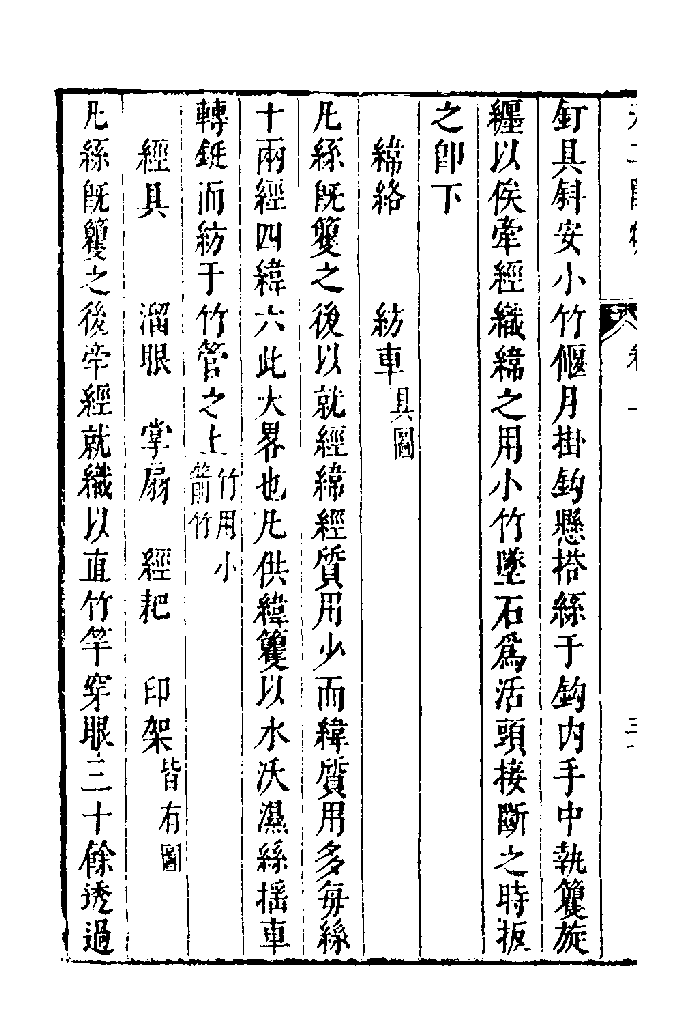 釘具斜安小竹偃月掛鈎懸搭絲于鈎内手中執籰旋
纒以俟牽經織緯之用小竹墜石為活頭接斷之時扳
之卽下
緯絡　紡車具圖
凡絲旣籰之後以就經緯經質用少而緯質用多每絲
十兩經四緯六此大畧也凡供緯籰以水沃濕絲揺車
轉鋌而紡于竹管之上竹用小箭竹
經具　溜眼　掌扇　經耙　印架皆有圖
凡絲旣籰之後牽經就織以直竹竿穿眼三十餘透過